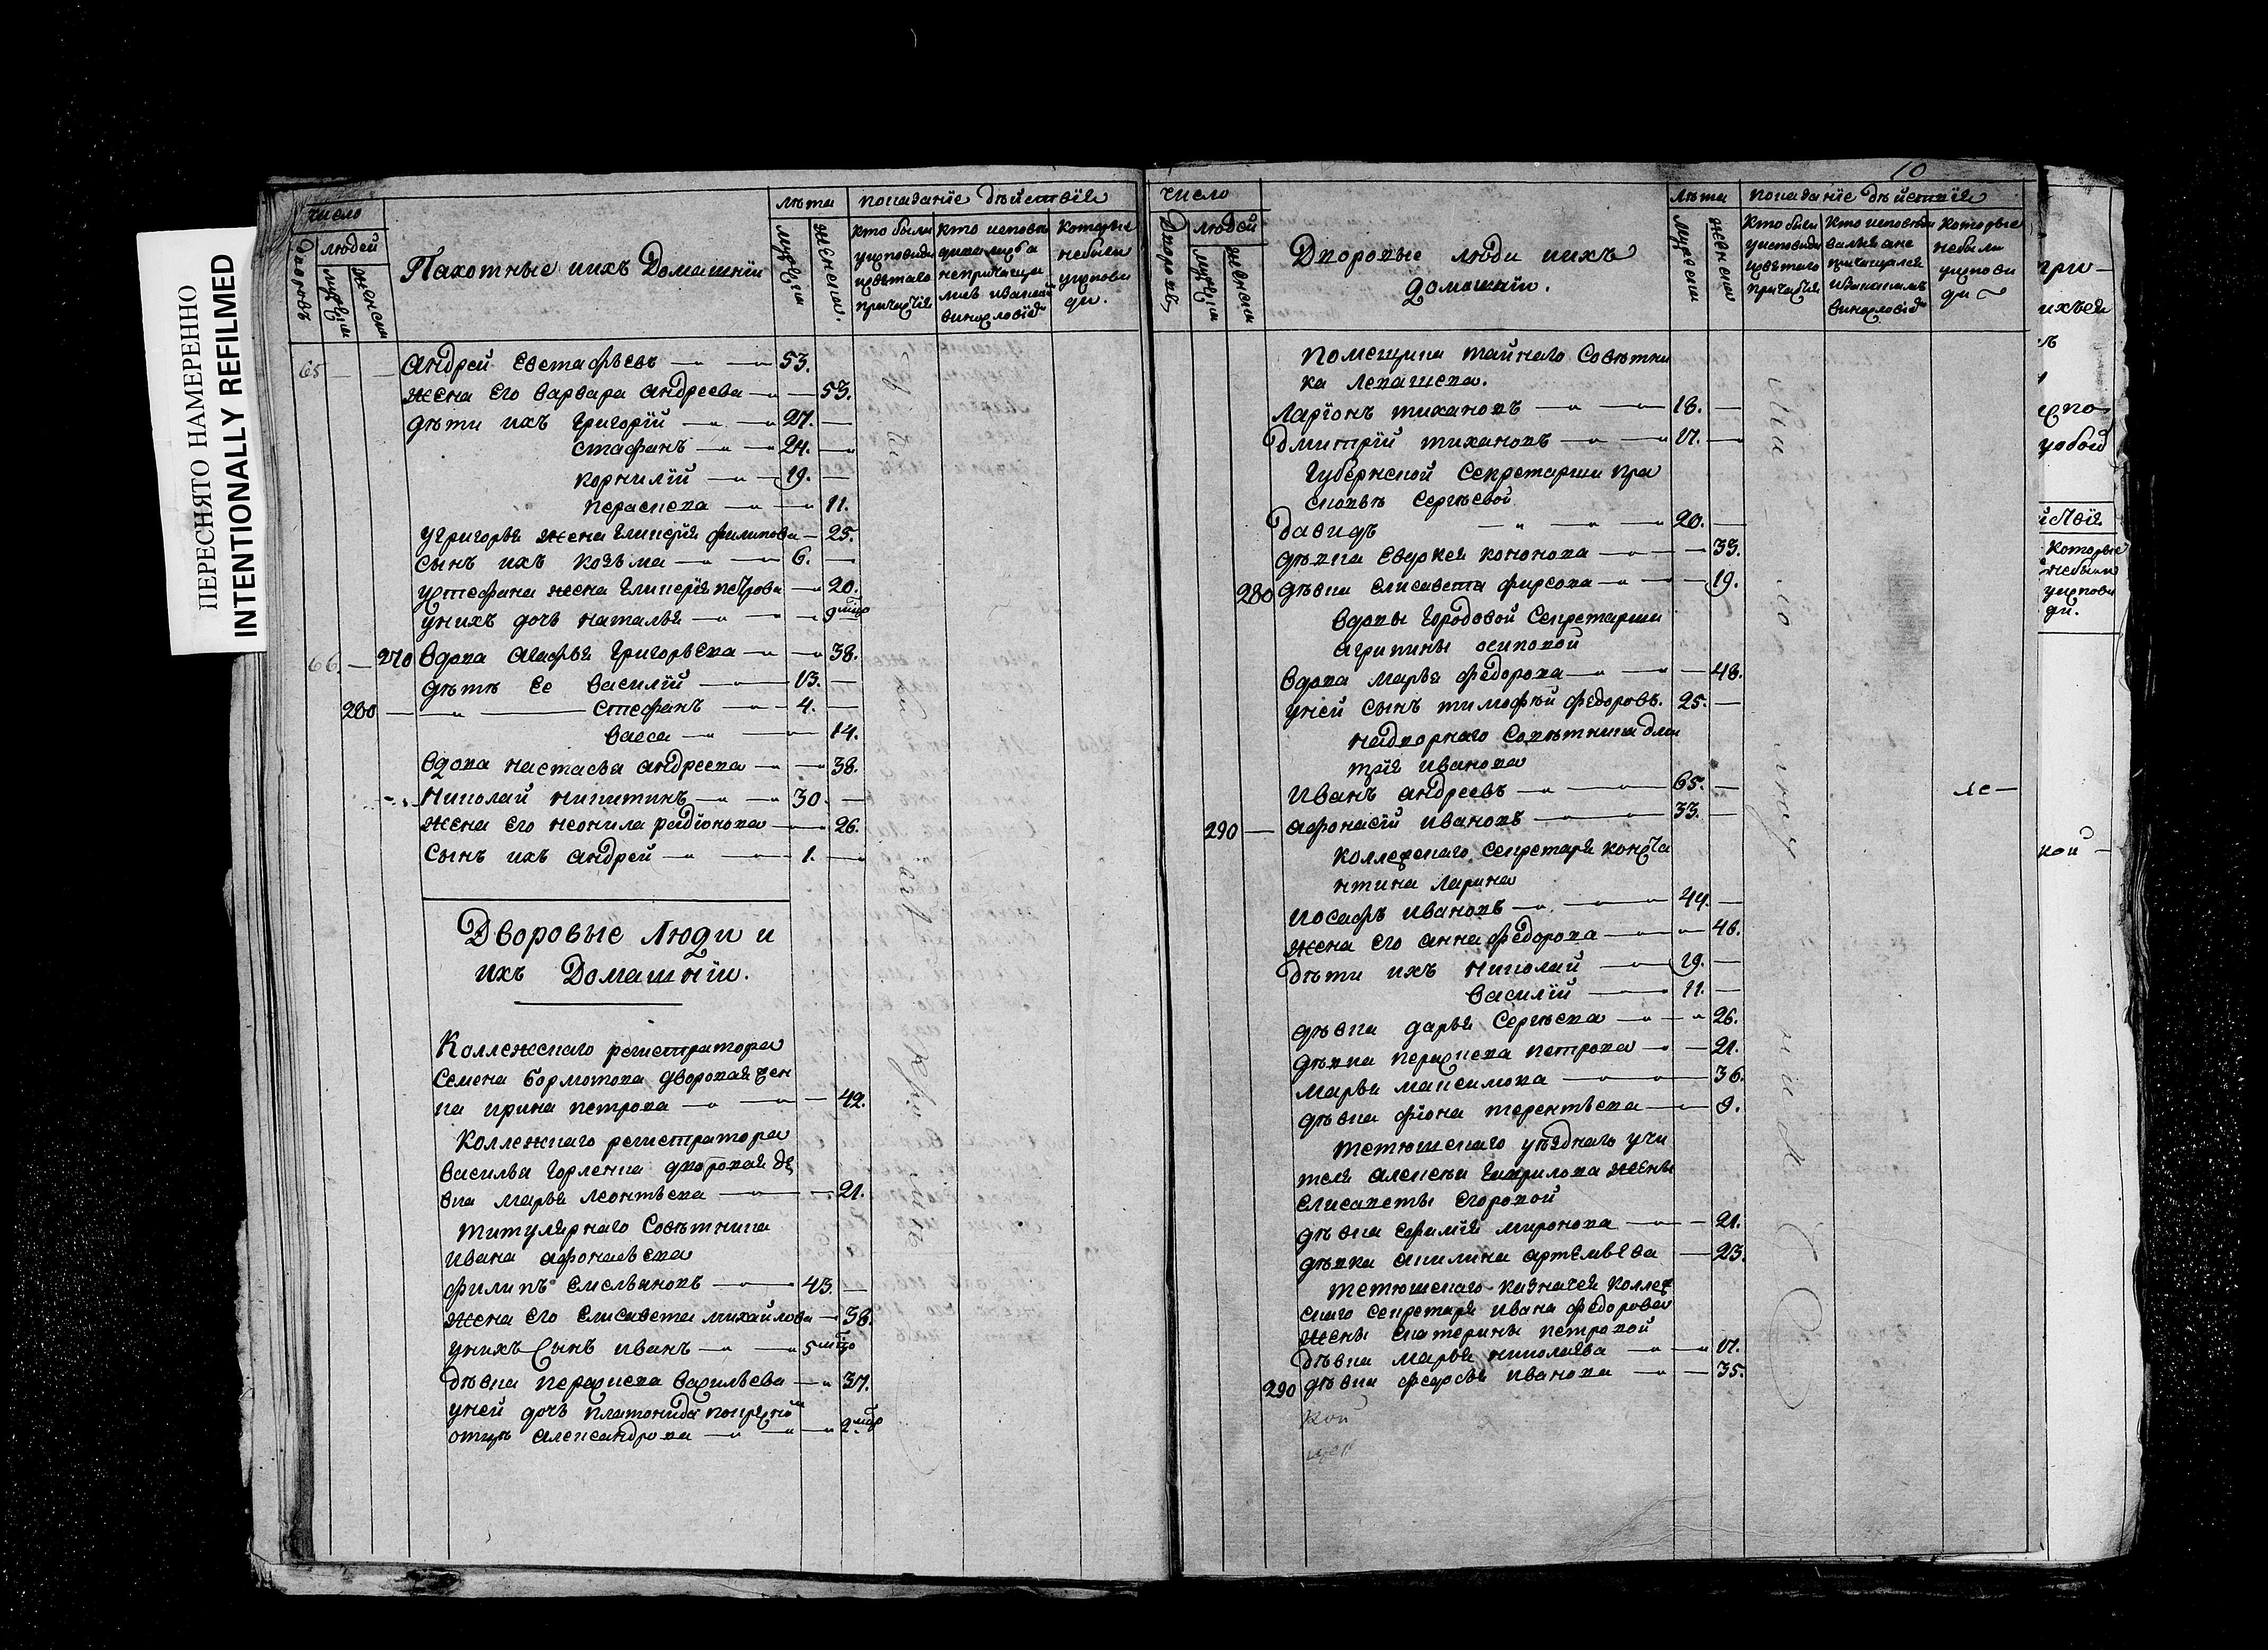 ПЕРЕСНЯТО НАМЕРЕННО
INTENTIONALLY REFILMED
число
лѣта
показанїе дѣйствїя
людей
Дворовъ
мужескии
женскии
Пахотные иихъ Домашнїи
мужескии
женскии.
кто были уисповеди исвятаго причастїя
которые небыли уисповеди.
65 Андрей Евстафьевъ 53.
жена Его варвара Андреева 53.
дѣти ихъ Григорїй 27.
Стефанъ 24.
Корнилїй 19.
Пераскева 11.
угригорья жена Гликерїя филипова 25.
сынъ ихъ козьма 6.
устефана жена Гликерїя петрова 20.
унихъ дочь наталья
66. 270 Вдова Агафья Григорьева 38.
дѣти Ее Василїй 13.
280 Стефанъ 4.
Васса 14.
вдова настасья андреева 38.
Николай никитинъ 30.
жена Его неонила радїонова 26.
Сынъ ихъ андрей 1.
Дворовые Люди и
ихъ Домашнїи.
Коллежскаго регистратора
Семена Бормотова дворовая жен
ка ирина петрова 42.
Коллежскаго регистратора
Василья Горленка дворовая дѣ
вка Марья леонтьева 21.
титулярнаго Совѣтника
ивана афонасьева
филипъ Емельяновъ 43.
жена Его Елисавета михайлова 38.
унихъ Сынъ иванъ 5
дѣвка пераскева васильева 37.
уней дочь платонида
отцѣ александрова 2
10
число
лѣта
показанїе дѣйствїя
Дворовъ
людей
мужескии
женскии
Дворовые люди иихъ
домашнїи.
мужескии
женскии
кто были уисповеди исвятаго причастїя
которые небыли уисповеди
Помещика тайнаго Совѣтни
ка Левашева.
Ларїонъ тихановъ 18.
Дмитрїй тихановъ 17.
Губернской Секретарши Пра
сковьѣ Сергѣевой
Давидъ 20.
дѣвка Евдокея кононова 33.
280 дѣвка Елисавета фирсова 19.
вдовы Городовой Секретарши
агрипины осиповой
вдова марья федорова 48.
уней сынъ тимофѣй федоровъ. 25.
надворнаго Совѣтника дми
трїя иванова
Иванъ андреевъ 65.
290 афонасїй ивановъ 33.
Коллежскаго секретаря конста
нтина ларина
Иосафъ ивановъ 44.
жена его анна федорова 46.
дѣти ихъ николай 19.
василїй 11.
дѣвка дарья Сергѣева 26.
дѣвка пераскева петрова 21.
марья максимова 36.
дѣвка фїона терентьева 9.
тетюшскаго уѣзднаго учи
теля алексѣя Гаврилова жены
Елисаветы Егоровой
дѣвка Ефимїя миронова 21.
дѣвка акилина артемьева 23.
тетюшскаго казначея коллеж
скаго секретаря ивана федорова
жены Екатерины петровой
дѣвка марья николаева 17.
290 дѣвка федосья иванова 35.
При
ихъея
которые
небыли
уиспове
ди.